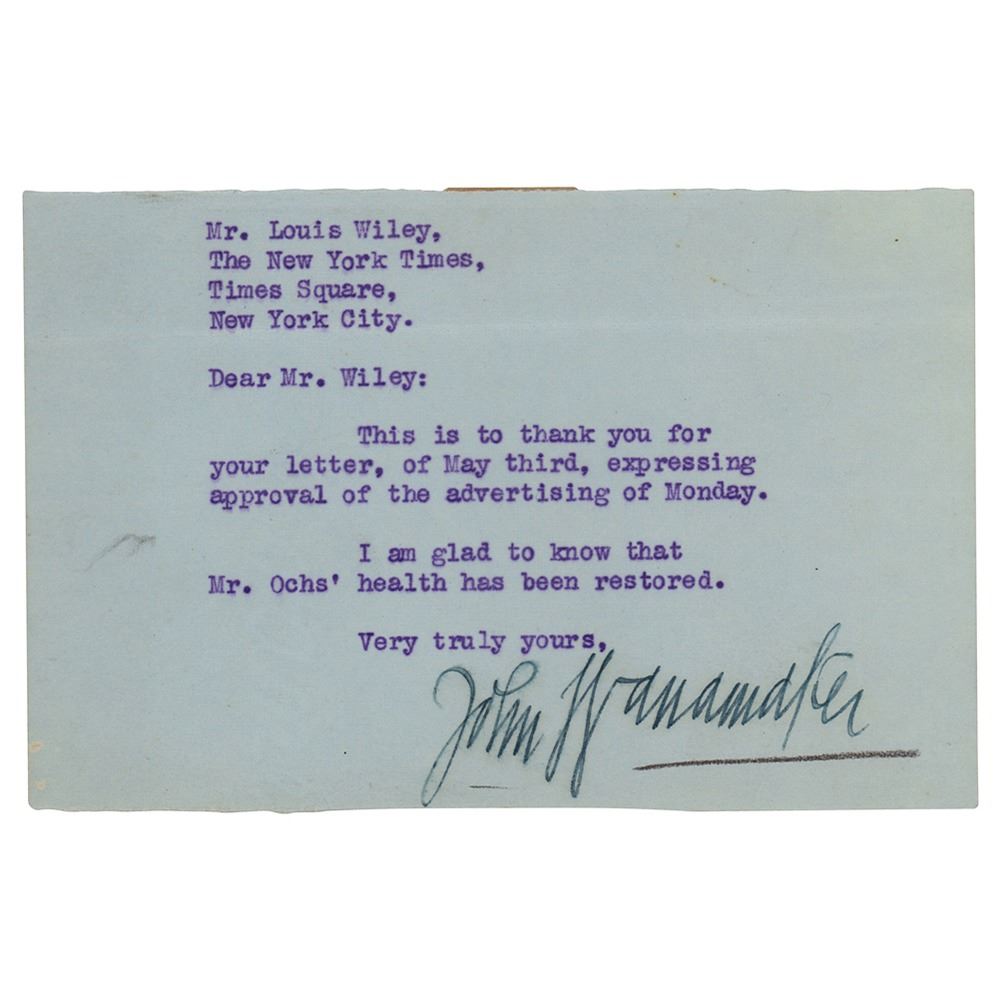 Mr. Louis Wiley,
The New York Times,
Times Square,
New York City.
Dear Mr. Wiley:
This is to thank you for
your letter, of May third, expressing
approval of the advertising of Monday.
I am glad to know that
Mr. Ochs' health has been restored.
Very truly yours,
John Wanamaker